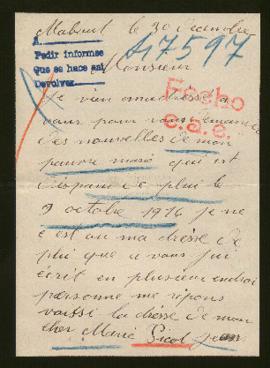 Mabrut le 30 decembre
A
Pedir informes
Que se hace asi
Devolver
47597
Monsieur
Fecho
C.a.c.
Je vien madresse a
vous pour vous demande
des nouvelles de mon
pauvre mari qui est
disparu de plui le
9 octobre 1916 je ne
c est ou ma dresse de
plui que a vous j'ai
écrit en plusieur endroi
personne me répons
vaissi la dresse de mon
cher Marie Picot Jean